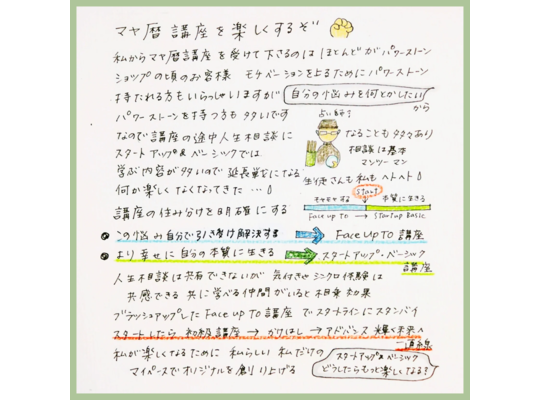 マヤ暦講座を楽しくするぞ
私からマヤ暦講座を受けて下さるのは ほとんどがパワーストーン
ショップの頃のお客様 モチベーションを上るために パワーストーン
持たれる方もいらっしゃいますが 自分の悩みを何とかしたい から
パワーストーンを持つ方も多いです
占い師？
なので 講座の途中人生相談に なることも多々あり
スタートアップ&ベーシックでは 相談は基本
マンツーマン
学ぶ内容が多いので 延長戦になる
生徒さんも私もヘトヘト
何か楽しくなくなってきた…
Start
講座の住み分けを明確にする
モヤモヤする 本質に生きる
Face up to → Startup Basic
この悩み自分で引き受け解決する Face up TO 講座
より幸せに自分の本質に生きる スタートアップ・ベーシック
講座
人生相談は共有できないが 気付きや シンクロ体験は
共感できる 共に学べる仲間がいると相乗効果
ブラッシュアップした Face up TO 講座 でスタートラインにスタンバイ
スタートしたら 初級講座 → かけはし → アドバンス 輝く未来へ
一直線
私が楽しくなるために 私らしい 私だけの
マイペースでオリジナルを創り上げる
スタートアップ&ベーシック
どうしたらもっと楽しくなる？